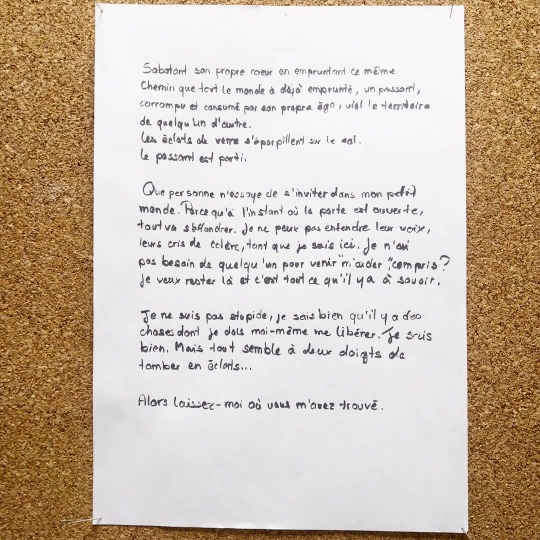 Sabotant son propre coeur en empruntant ce même
Chemin que tout le monde à déjà emprunté, un passant,
corrompu et consumé par son propre égo, viol le territoire
de quelqu'un d'autre.
Les éclats de verre s'éparpillent sur le sol.
Le passant est parti.
Que personne n'essaye de s'inviter dans mon petit
monde. Parce qu'à l'instant où la porte est ouverte,
tout va s'éffondrer. Je ne peux pas entendre leur voix,
leurs cris de colère, tant que je suis ici. Je n'ai
pas besoin de quelqu'un pour venir "m'aider", compris?
Je veux rester là et c'est tout ce qu'il y a à savoir.
Je ne suis pas stupide, je sais bien qu'il y a des
choses dont je dois moi-même me libérer. Je suis
bien. Mais tout semble à deux doigts de
tomber en éclats...
Alors laissez-moi où vous m'avez trouvé.